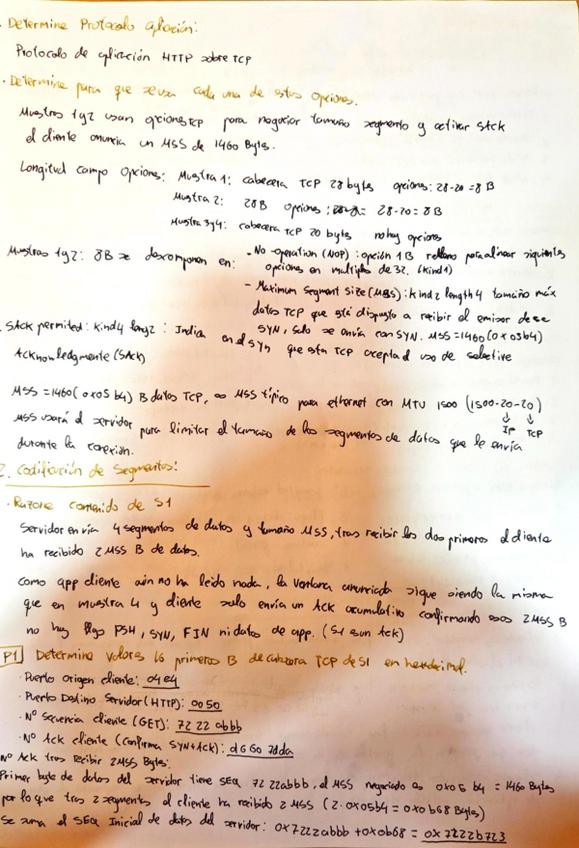 · Determine Protocolo aplicación:
Protocolo de aplicación HTTP sobre TCP
· Determine para que se usa cada una de estas Opciones.
Muestras 1 y 2 usan opciones TCP para negociar tamaño segmento y activar SAck
el cliente anuncia un MSS de 1460 Bytes.
Longitud campo Opciones: Muestra 1: cabecera TCP 28 bytes opciones: 28-20 = 8 B
Muestra 2: 28B opciones: 28-20 = 8 B
Muestra 3y4: cabecera TCP 20 bytes no hay opciones
Muestras 1y2: 8B se descomponen en: - No-operation (NOP): opción 1B relleno para alinear siguientes
opciones en multiplos de 32. (Kind1)
- Maximum Segment Size (MSS): kind2 length4 tamaño máx
datos TCP que está dispuesto a recibir el emisor de ese
SYN, solo se envía con SYN. MSS=1460 (0x05b4)
· SAck permitted: kind4 long2: Indica en el syn que esta TCP acepta el uso de selective
Acknowledgmente (SAck)
MSS = 1460 (0x05b4) B datos TCP, es MSS típico para ethernet con MTU 1500 (1500-20-20)
IP TCP
MSS usará el servidor para limitar el tamaño de los segmentos de datos que le envía
durante la conexion.
2. Codificación de Segmentos:
· Razone contenido de S1
Servidor envía 4 segmentos de datos y tamaño MSS, tras recibir los dos primeros el cliente
ha recibido 2 MSS B de datos.
Como app cliente aún no ha leido nada, la ventana anunciada sigue siendo la misma
que en muestra 4 y cliente solo envía un Ack acumulativo confirmando esos 2MSS B
no hay flags PSH, SYN, FIN ni datos de app. (S1 es un Ack)
P1 Determine valores 16 primeros B de cabecera TCP de S1 en hexadecimal.
· Puerto origen cliente: 04e4
· Puerto Destino Servidor (HTTP): 0050
· Nº Secuencia cliente (GET): 7222 abbb
· Nº Ack cliente (Confirma SYN+Ack): d660 7dda
Nº Ack tras recibir 2MSS Bytes:
Primer byte de datos del servidor tiene SEQ 7222abbb, el MSS negociado es 0x05b4 = 1460 Bytes
por lo que tras 2 segmentos el cliente ha recibido 2 MSS (2·0x05b4 = 0x0b68 Bytes)
Se suma el SEQ Inicial de datos del servidor: 0x7222abbb + 0x0b68 = 0x7222b723